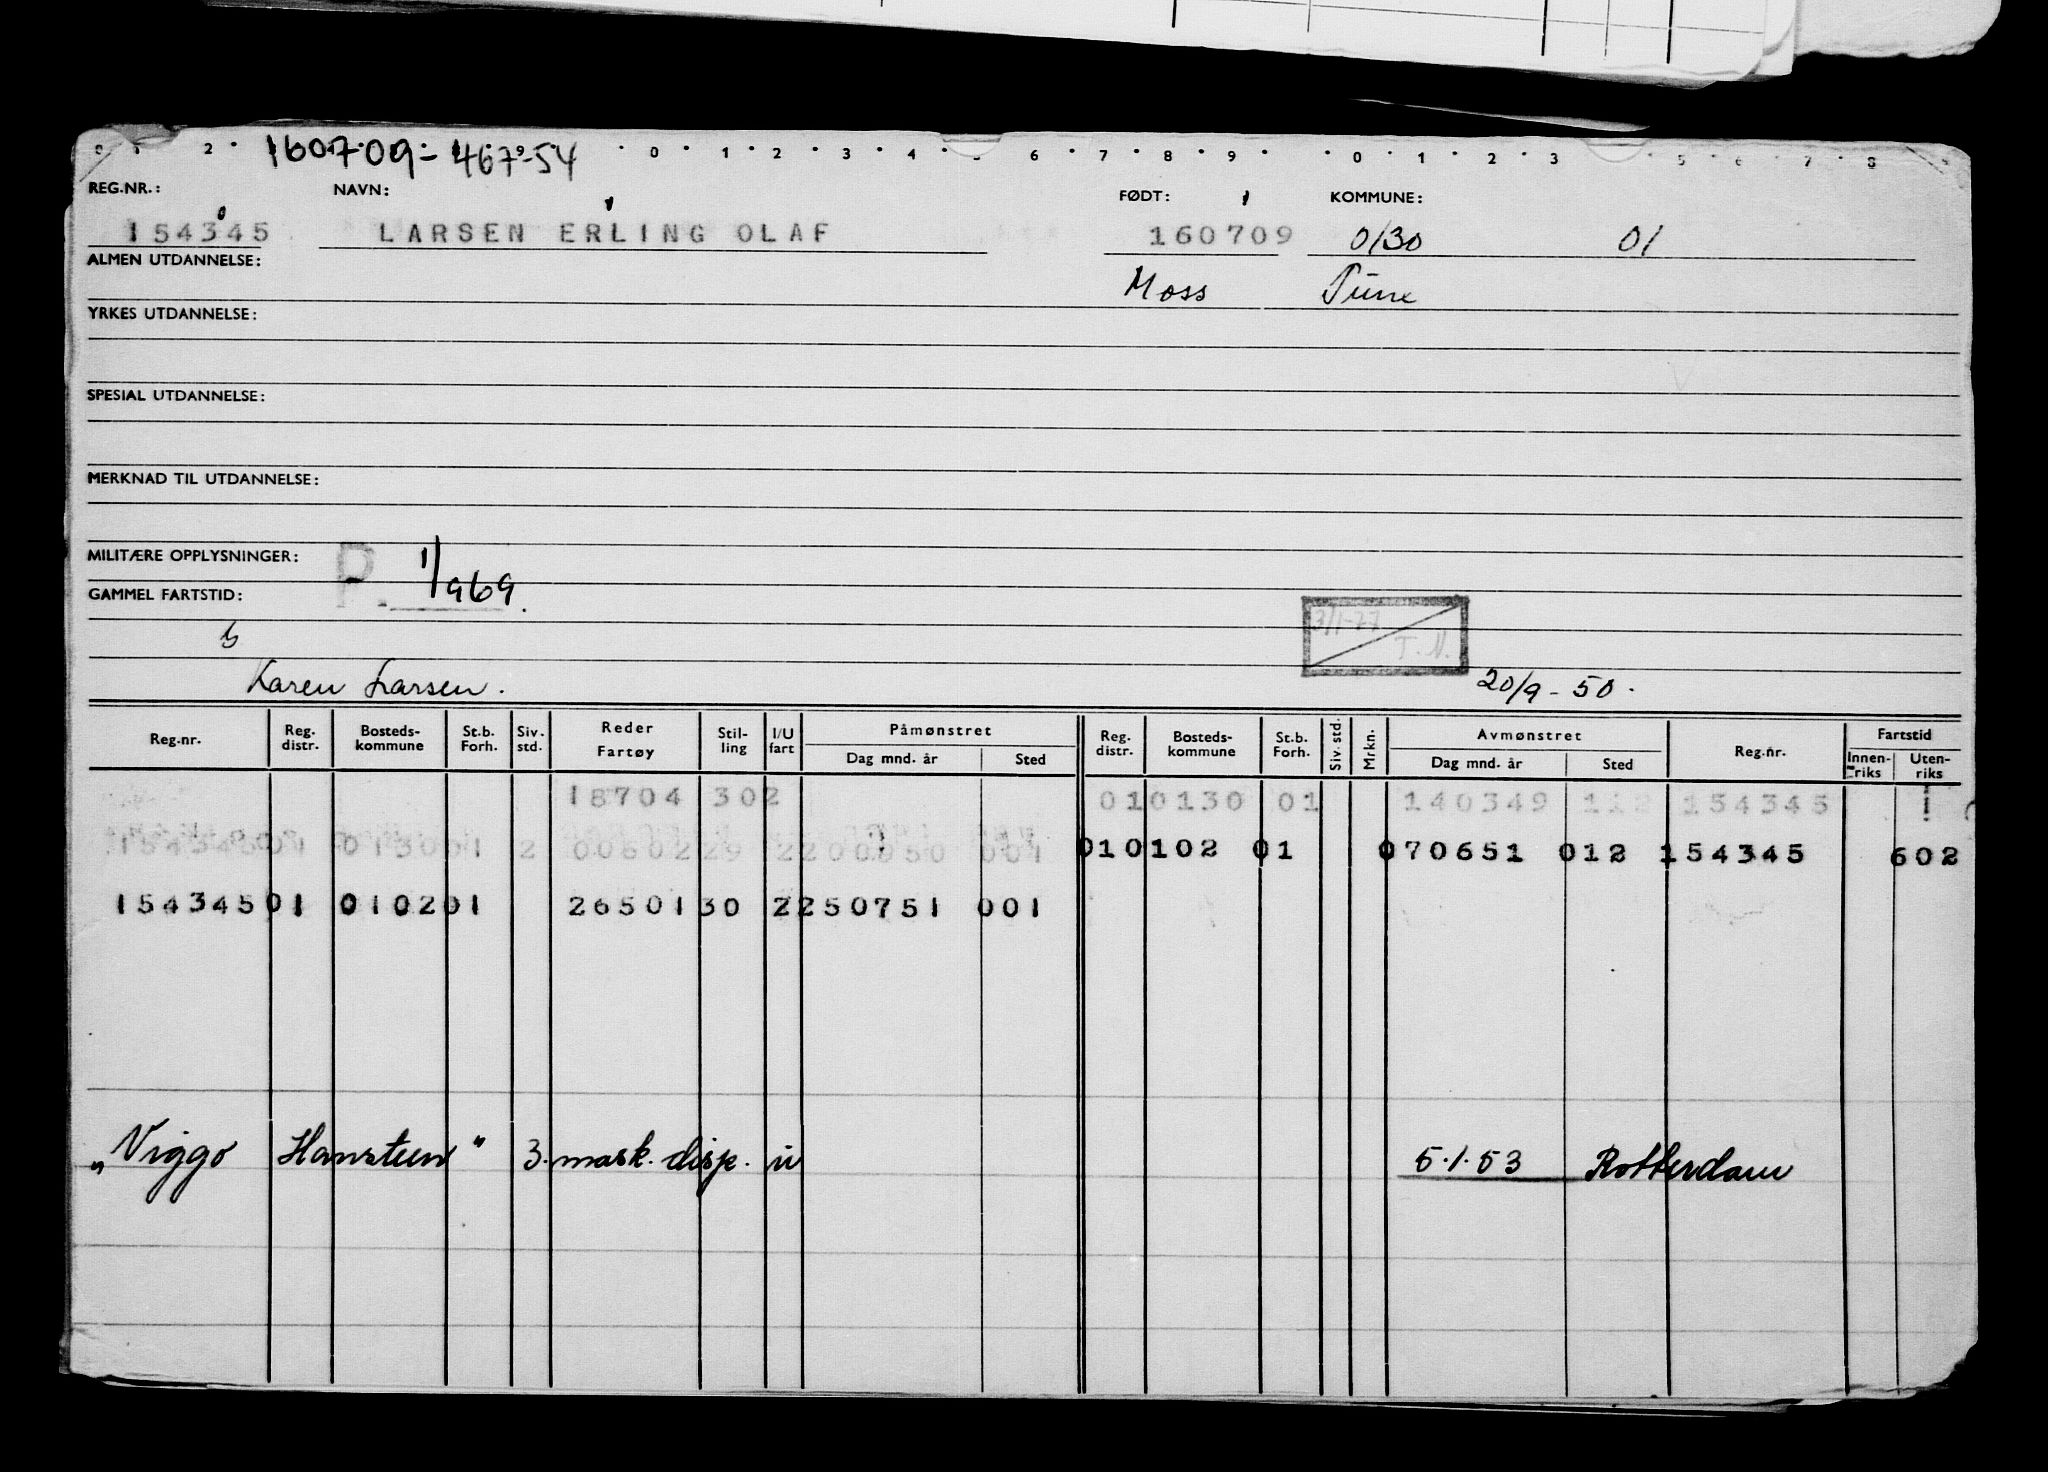 2 160709-467-54 0 1 2 3 4 5 6 7 8 9 0 1 2 3 5 6 7 8
REG.NR.: NAVN: FØDT: KOMMUNE:
154345 LARSEN ERLING OLAF 160709 0130 01
ALMEN UTDANNELSE: Moss Tune
YRKES UTDANNELSE:
SPESIAL UTDANNELSE:
MERKNAD TIL UTDANNELSE:
MILITÆRE OPPLYSNINGER: P. 1/969.
GAMMEL FARTSTID:
3/1-77 T.N.
Karen Larsen. 20/9-50.
Reg.nr. Reg. distr. Bosteds-kommune St.b. Forh. Siv. std. Reder Fartøy Stil-ling I/U fart Påmønstret Dag mnd. år Sted Reg. distr. Bosteds-kommune St.b. Forh. Siv. std. Mrkn. Avmønstret Dag mnd. år Sted Reg.nr. Fartstid Innen-riks Uten-riks
18704 302 010130 01 140349 154345
154345 01 0130 01 2 00602 29 2 200950 001 010102 01 070651 012 154345 602
154345 01 0102 01 26501 30 2 250751 001
„Viggo Hansteen" 3. mask. disp. u 5.1.53 Rotterdam